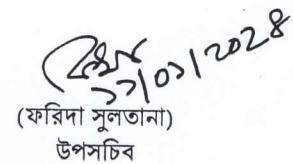 ১১/০১/২০২৪
(ফরিদা সুলতানা)
উপসচিব